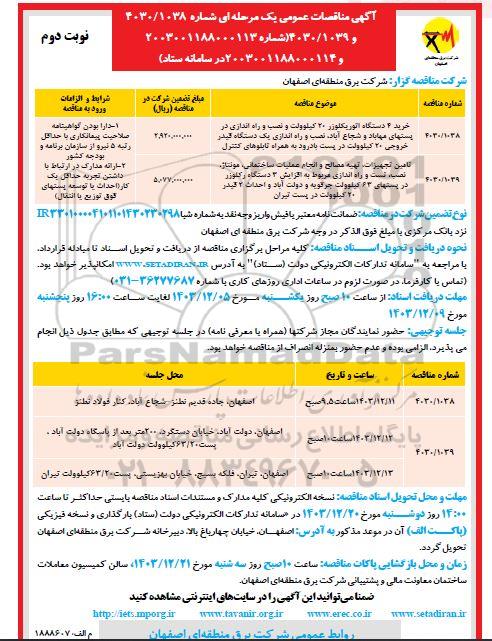 آگهی مناقصات عمومی یک مرحله ای شماره ۴۰۳۰/۱۰۳۸
و ۴۰۳۰/۱۰۳۹(شماره ۲۰۰۳۰۰۱۱۸۸۰۰۰۱۱۳
و ۲۰۰۳۰۰۱۱۸۸۰۰۰۱۱۴در سامانه ستاد)
نوبت دوم
شرکت برق منطقه‌ای اصفهان
شرکت مناقصه گزار: شرکت برق منطقه‌ای اصفهان
شماره مناقصه
موضوع مناقصه
مبلغ تضمین شرکت در مناقصه (ریال)
شرایط و الزامات ورود به مناقصه
۴۰۳۰/۱۰۳۸
خرید ۴ دستگاه اتوریکلوزر ۲۰ کیلوولت و نصب و راه اندازی در
پستهای مهاباد و شجاع آباد، نصب و راه اندازی یک دستگاه فیدر
خروجی ۲۰ کیلوولت در پست بادرود به همراه تابلوهای کنترل
۲,۹۲۰,۰۰۰,۰۰۰
۱-دارا بودن گواهینامه
صلاحیت پیمانکاری با حداقل
رتبه ۵ نیرو از سازمان برنامه و
بودجه کشور
۲-ارائه مدارک در ارتباط با
داشتن تجربه حداقل یک
کار(احداث یا توسعه پستهای
فوق توزیع یا انتقال)
۴۰۳۰/۱۰۳۹
تامین تجهیزات، تهیه مصالح و انجام عملیات ساختمانی، مونتاژ،
نصب، تست و راه اندازی مربوط به افزایش ۳ دستگاه رکلوزر
در پستهای ۶۳ کیلوولت جرقویه و دولت آباد و احداث ۲ فیدر
۲۰ کیلوولت در پست تیران
۵,۰۷۷,۰۰۰,۰۰۰
نوع تضمین شرکت در مناقصه: ضمانت نامه معتبر یا فیش واریز وجه نقد به شماره شبا IR۳۳۰۱۰۰۰۰۴۱۰۱۱۰۱۴۳۰۲۳۰۲۹۸
نزد بانک مرکزی با مبلغ فوق الذکر در وجه شرکت برق منطقه ای اصفهان
نحوه دریافت و تحویل اسناد مناقصه: کلیه مراحل برگزاری مناقصه از دریافت و تحویل اسناد تا مبادله قرارداد،
با مراجعه به "سامانه تدارکات الکترونیکی دولت (ستاد)" به آدرس WWW.SETADIRAN.IR امکانپذیر خواهد بود.
(تماس با کارفرما، در صورت لزوم در ساعات اداری روزهای کاری با شماره ۳۶۲۷۷۶۸۷-۰۳۱)
مهلت دریافت اسناد: از ساعت ۱۰ صبح روز یکشنبه مورخ ۱۴۰۳/۱۲/۰۵ لغایت ساعت ۱۶:۰۰ روز پنجشنبه
مورخ ۱۴۰۳/۱۲/۰۹
جلسه توجیهی: حضور نمایندگان مجاز شرکتها (همراه با معرفی نامه) در جلسه توجیهی که مطابق جدول ذیل انجام
می پذیرد، الزامی بوده و عدم حضور بمنزله انصراف از مناقصه خواهد بود.
شماره مناقصه
ساعت و تاریخ
محل جلسه
۴۰۳۰/۱۰۳۸
۱۴۰۳/۱۲/۱۱ساعت۹.۵صبح
اصفهان، جاده قدیم نطنز، شجاع آباد، کنار فولاد نطنز
۴۰۳۰/۱۰۳۹
۱۴۰۳/۱۲/۱۲ساعت۱۰صبح
اصفهان، دولت آباد، خیابان دستگرد، ۲۰۰متر بعد از باسگاه دولت آباد ،
پست۶۳/۲۰کیلوولت دولت آباد
۱۴۰۳/۱۲/۱۳ساعت۱۰صبح
اصفهان، تیران، فلکه بسیج، خیابان بهزیستی، پست۶۳/۲۰کیلوولت تیران
مهلت و محل تحویل اسناد مناقصه: نسخه الکترونیکی کلیه مدارک و مستندات اسناد مناقصه بایستی حداکثر تا ساعت
۱۴:۰۰ روز دوشنبه مورخ ۱۴۰۳/۱۲/۲۰ در «سامانه تدارکات الکترونیکی دولت (ستاد) بارگذاری و نسخه فیزیکی
(پاکت الف) آن در موعد مذکور به آدرس: اصفهان، خیابان چهارباغ بالا، دبیرخانه شرکت برق منطقه‌ای اصفهان
تحویل گردد.
زمان و محل بازگشایی پاکات مناقصه: ساعت ۱۰صبح روز سه شنبه مورخ ۱۴۰۳/۱۲/۲۱، سالن کمیسیون معاملات
ساختمان معاونت مالی و پشتیبانی شرکت برق منطقه‌ای اصفهان.
ضمنا می‌توانید این آگهی را در سایت‌های اینترنتی مشاهده کنید
http://iets.mporg.ir www.tavanir.org.ir www.erec.co.ir www.setadiran.ir
روابط عمومی شرکت برق منطقه‌ای اصفهان
م الف: ۱۸۸۸۶۰۷
ParsNamadData